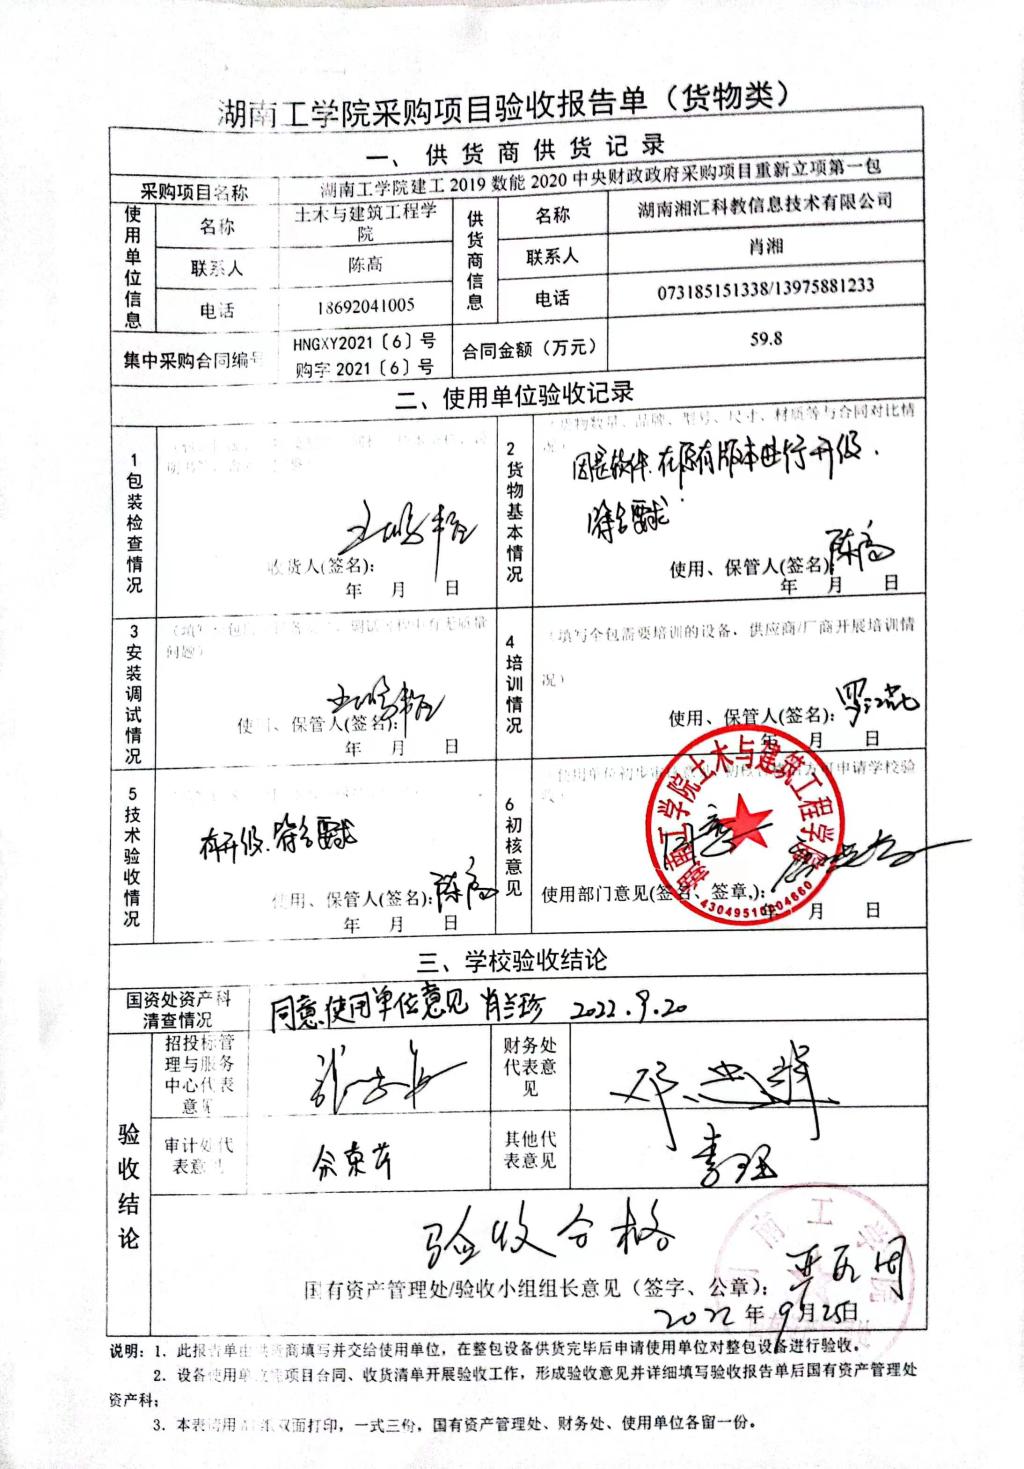 湖南工学院采购项目验收报告单（货物类）
一、供货商供货记录
采购项目名称 湖南工学院建工2019数能2020中央财政政府采购项目重新立项第一包
使用单位信息
名称 土木与建筑工程学院
联系人 陈高
电话 18692041005
供货商信息
名称 湖南湘汇科教信息技术有限公司
联系人 肖湘
电话 073185151338/13975881233
集中采购合同编号
HNGXY2021〔6〕号
购字2021〔6〕号
合同金额（万元） 59.8
二、使用单位验收记录
1包装检查情况
收货人(签名):
年 月 日
2货物基本情况
货物数量、品牌、型号、尺寸、材质等与合同对比情
因是软件.在原有版本进行升级.
符合要求
使用、保管人(签名) 陈高
年 月 日
3安装调试情况
问题）
使用、保管人(签名):
年 月 日
4培训情况
（填写全包需要培训的设备、供应商/厂商开展培训情
况）
使用、保管人(签名):
年 月 日
5技术验收情况
有升级.符合要求
使用、保管人(签名): 陈高
年 月 日
6初核意见
同意
使用部门意见(签名、签章,):
年 月 日
湖南工学院土木与建筑工程学院
43049510004660
三、学校验收结论
国资处资产科
清查情况
同意使用单位意见 肖兰珍 2022.9.20
验收结论
招投标管
理与服务
中心代表
意见
财务处
代表意
见
审计处代
表意见
其他代
表意见
验收合格
国有资产管理处/验收小组组长意见（签字、公章）:
2022年9月25日
说明：1. 此报告单由供货商填写并交给使用单位，在整包设备供货完毕后申请使用单位对整包设备进行验收。
2. 设备使用单位依项目合同、收货清单开展验收工作，形成验收意见并详细填写验收报告单后国有资产管理处
资产科;
3. 本表请用A4纸双面打印，一式三份，国有资产管理处、财务处、使用单位各留一份。